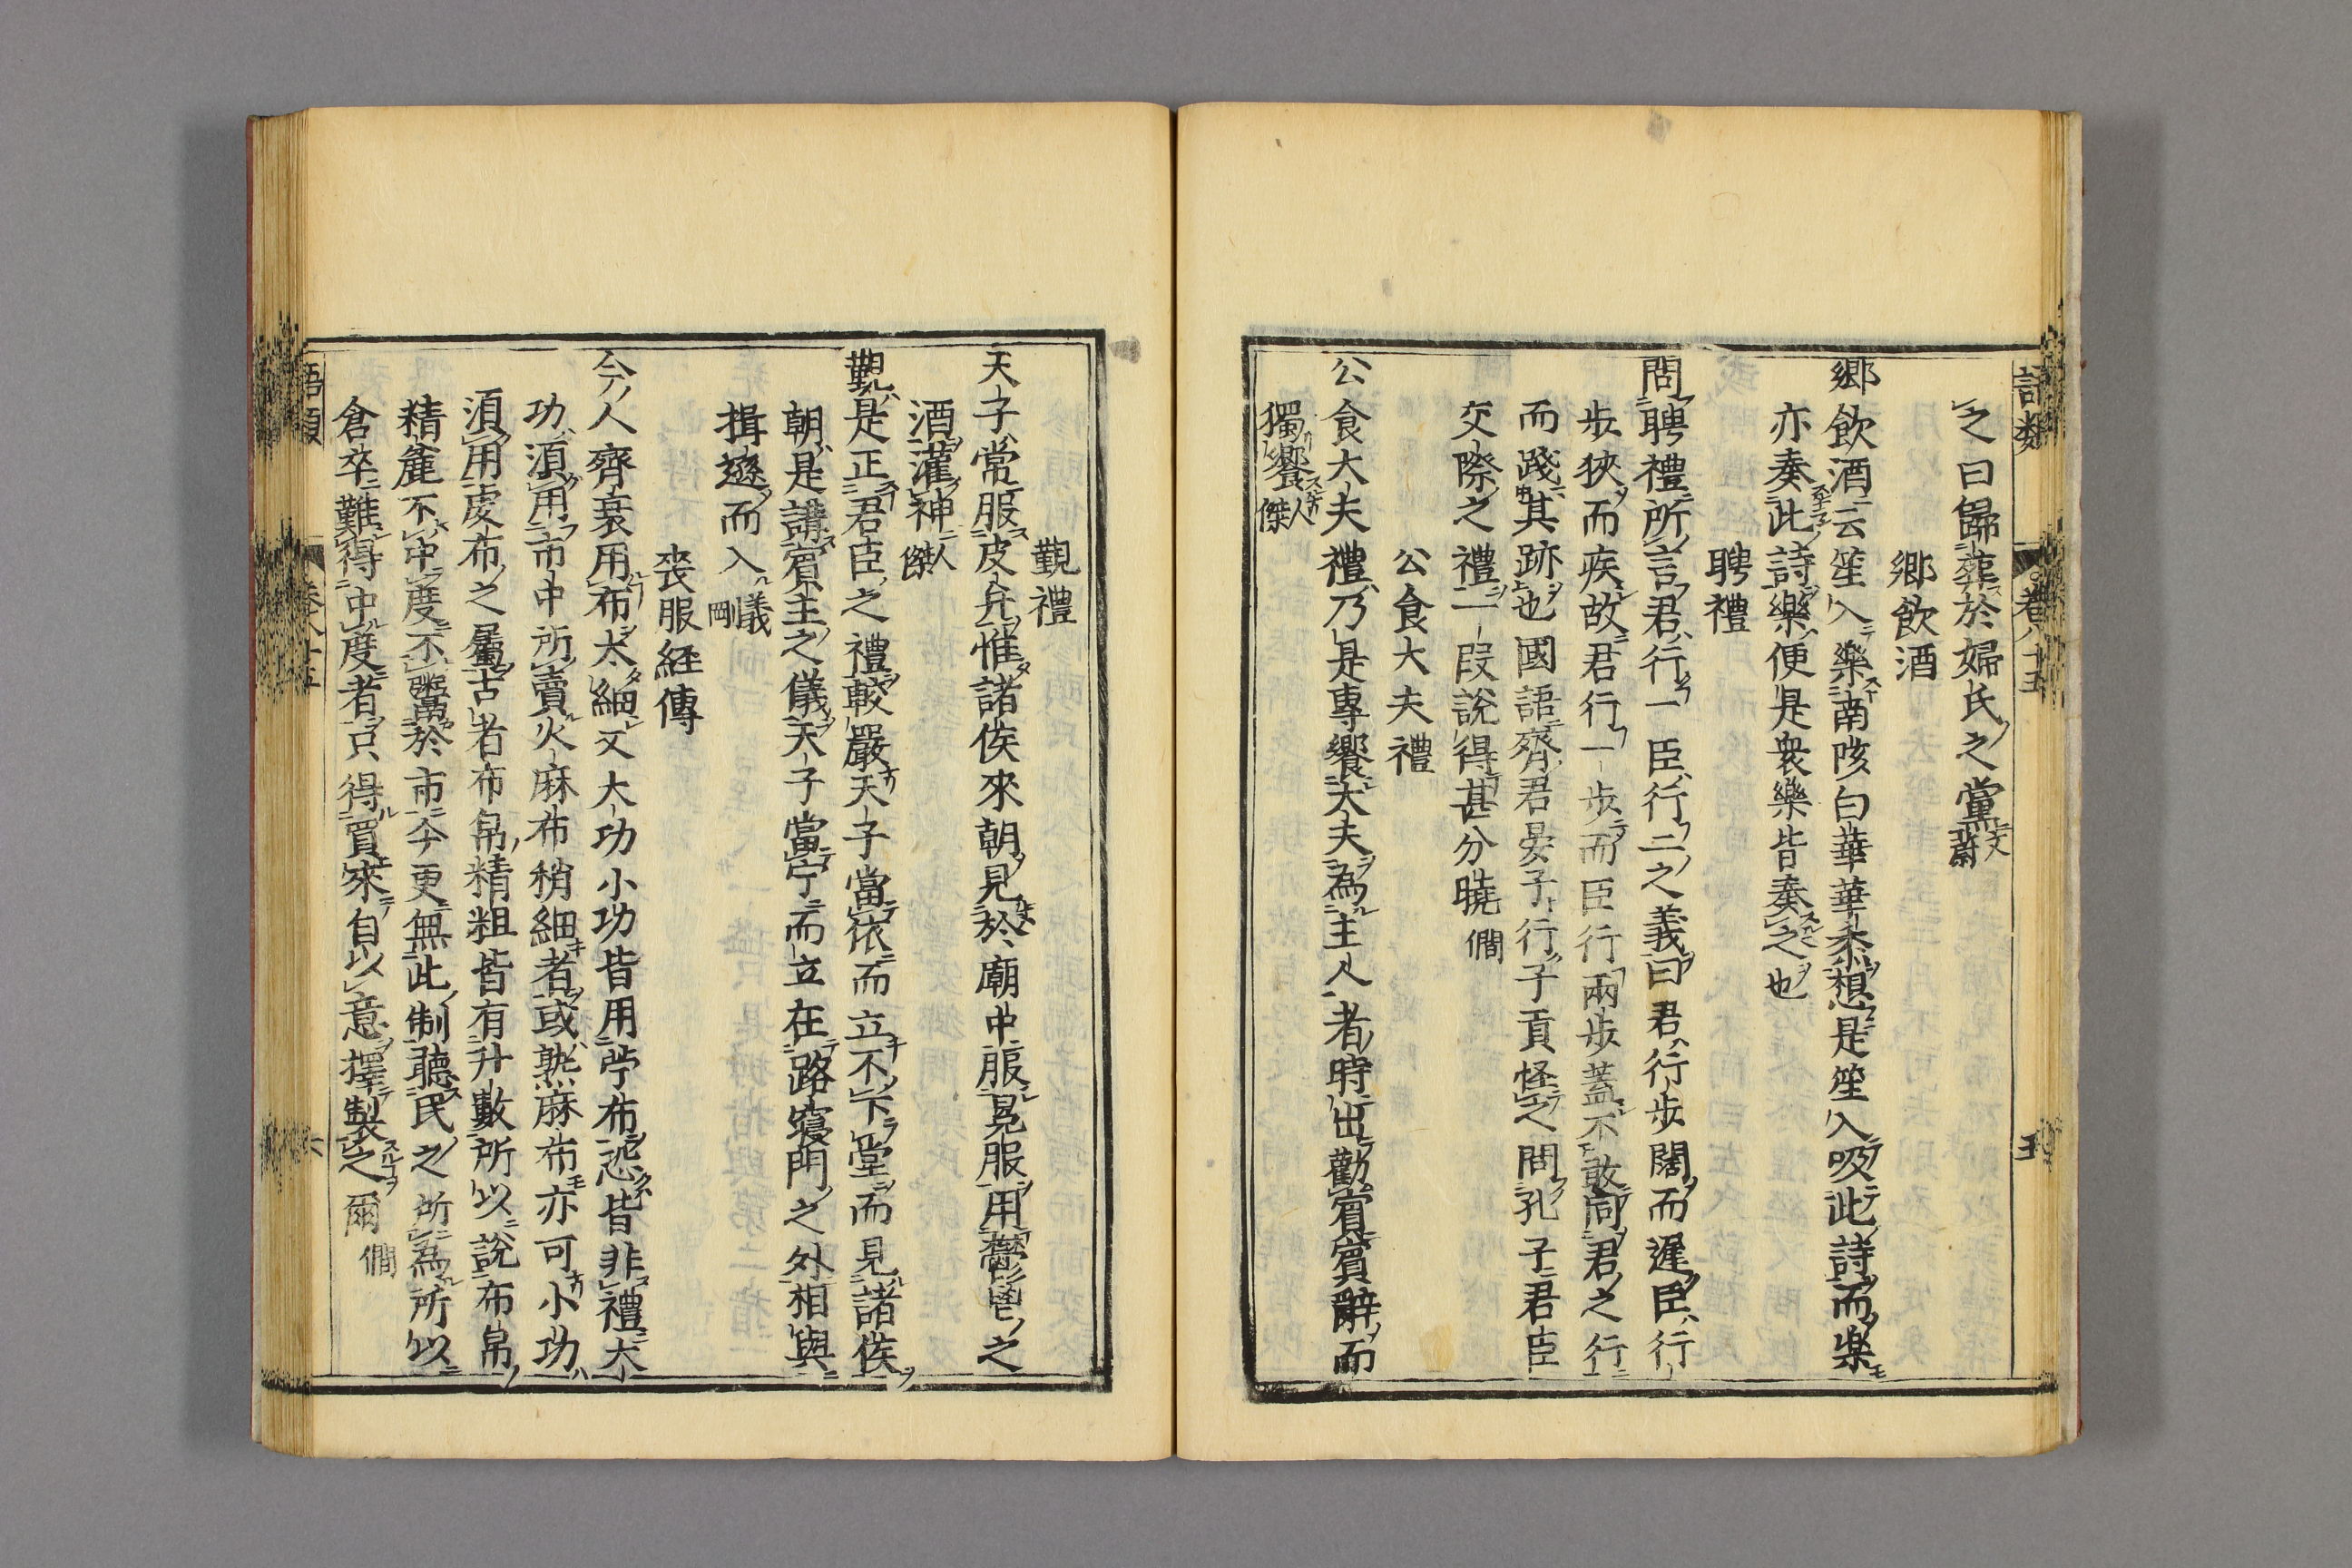 語類 卷八十五 五
之曰歸葬於婦氏之黨文蔚
鄉飲酒
鄉飲酒云笙入樂南陔白華華黍想是笙入吸此詩而樂
亦奏此詩樂便是衆樂皆奏之也
聘禮
問聘禮所言君行一臣行二之義曰君行步闊而遲臣行
步狹而疾故君行一步而臣行兩步蓋不敢同君之行
而踐其跡也國語齊君晏子行子貢怪之問孔子君臣
交際之禮一段說得甚分曉僩
公食大夫禮
公食大夫禮乃是專饗大夫為主人者時出勸賓賓辭而
獨饗人傑
覲禮
天子常服皮弁惟諸侯來朝見於廟中服冕服用鬱鬯之
酒灌神人傑
覲是正君臣之禮較嚴天子當依而立不下堂而見諸侯
朝是講賓主之儀天子當宁而立在路寢門之外相與
揖遜而入義剛
喪服經傳
今人齊衰用布太細又大功小功皆用苧布恐皆非禮大
功須用市中所賣火麻布稍細者或熟麻布亦可小功
須用虔布之屬古者布帛精粗皆有升數所以說布帛
精麄不中度不鬻於市今更無此制聽民之所為所以
倉卒難得中度者只得買來自以意擇製之爾僩
語類 卷八十五 六